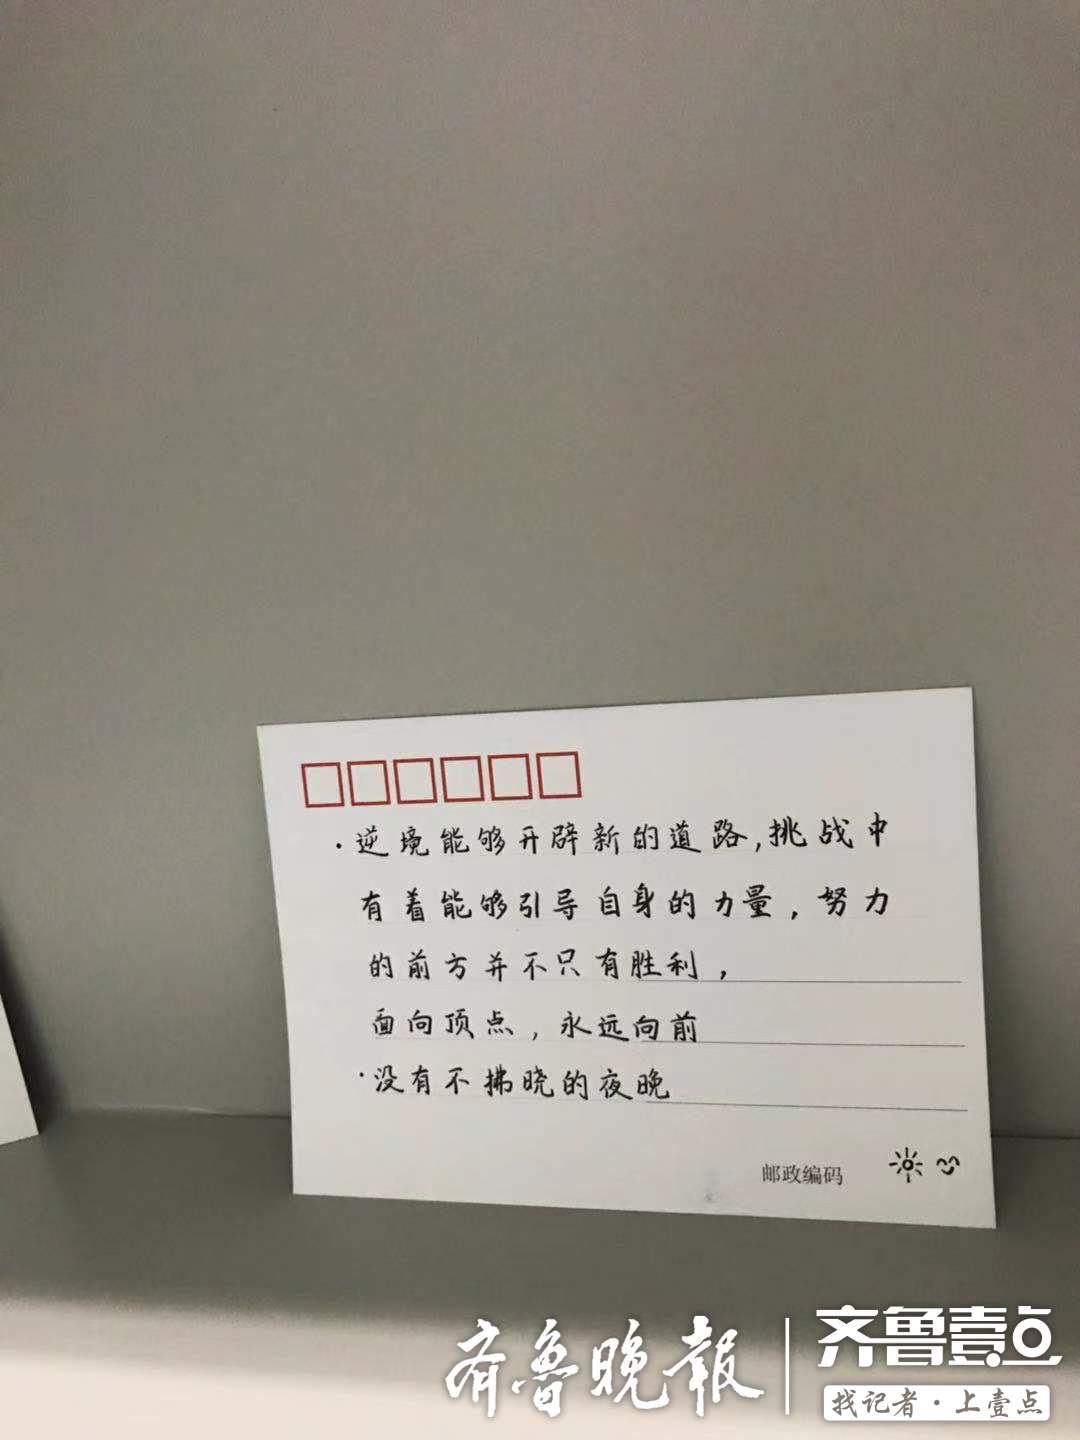 ·逆境能够开辟新的道路,挑战中
有着能够引导自身的力量，努力
的前方并不只有胜利，
面向顶点，永远向前
·没有不拂晓的夜晚
邮政编码
齐鲁晚报
齐鲁壹点
找记者·上壹点